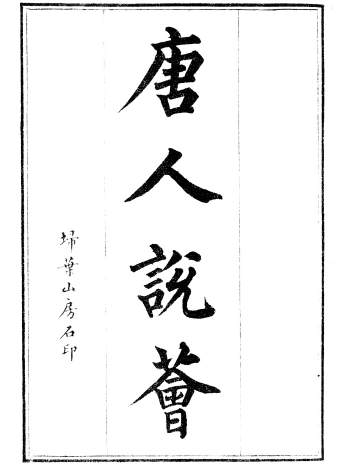 唐人說薈
埽葉山房石印